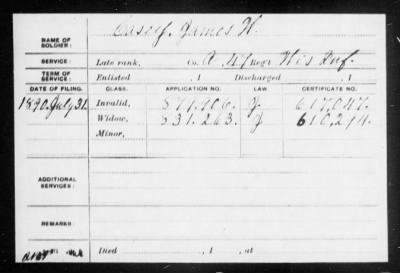 NAME OF SOLDIER: Casey, James H.
SERVICE: Late rank, Co. A 47 Reg't Wis Inf.
TERM OF SERVICE: Enlisted , 1 Discharged , 1
DATE OF FILING. CLASS. APPLICATION NO. LAW CERTIFICATE NO.
1890 July 31. Invalid, J. 617,047.
Widow, 831.263. J 610,214.
Minor,
ADDITIONAL SERVICES:
REMARKS:
Died , 1 , at